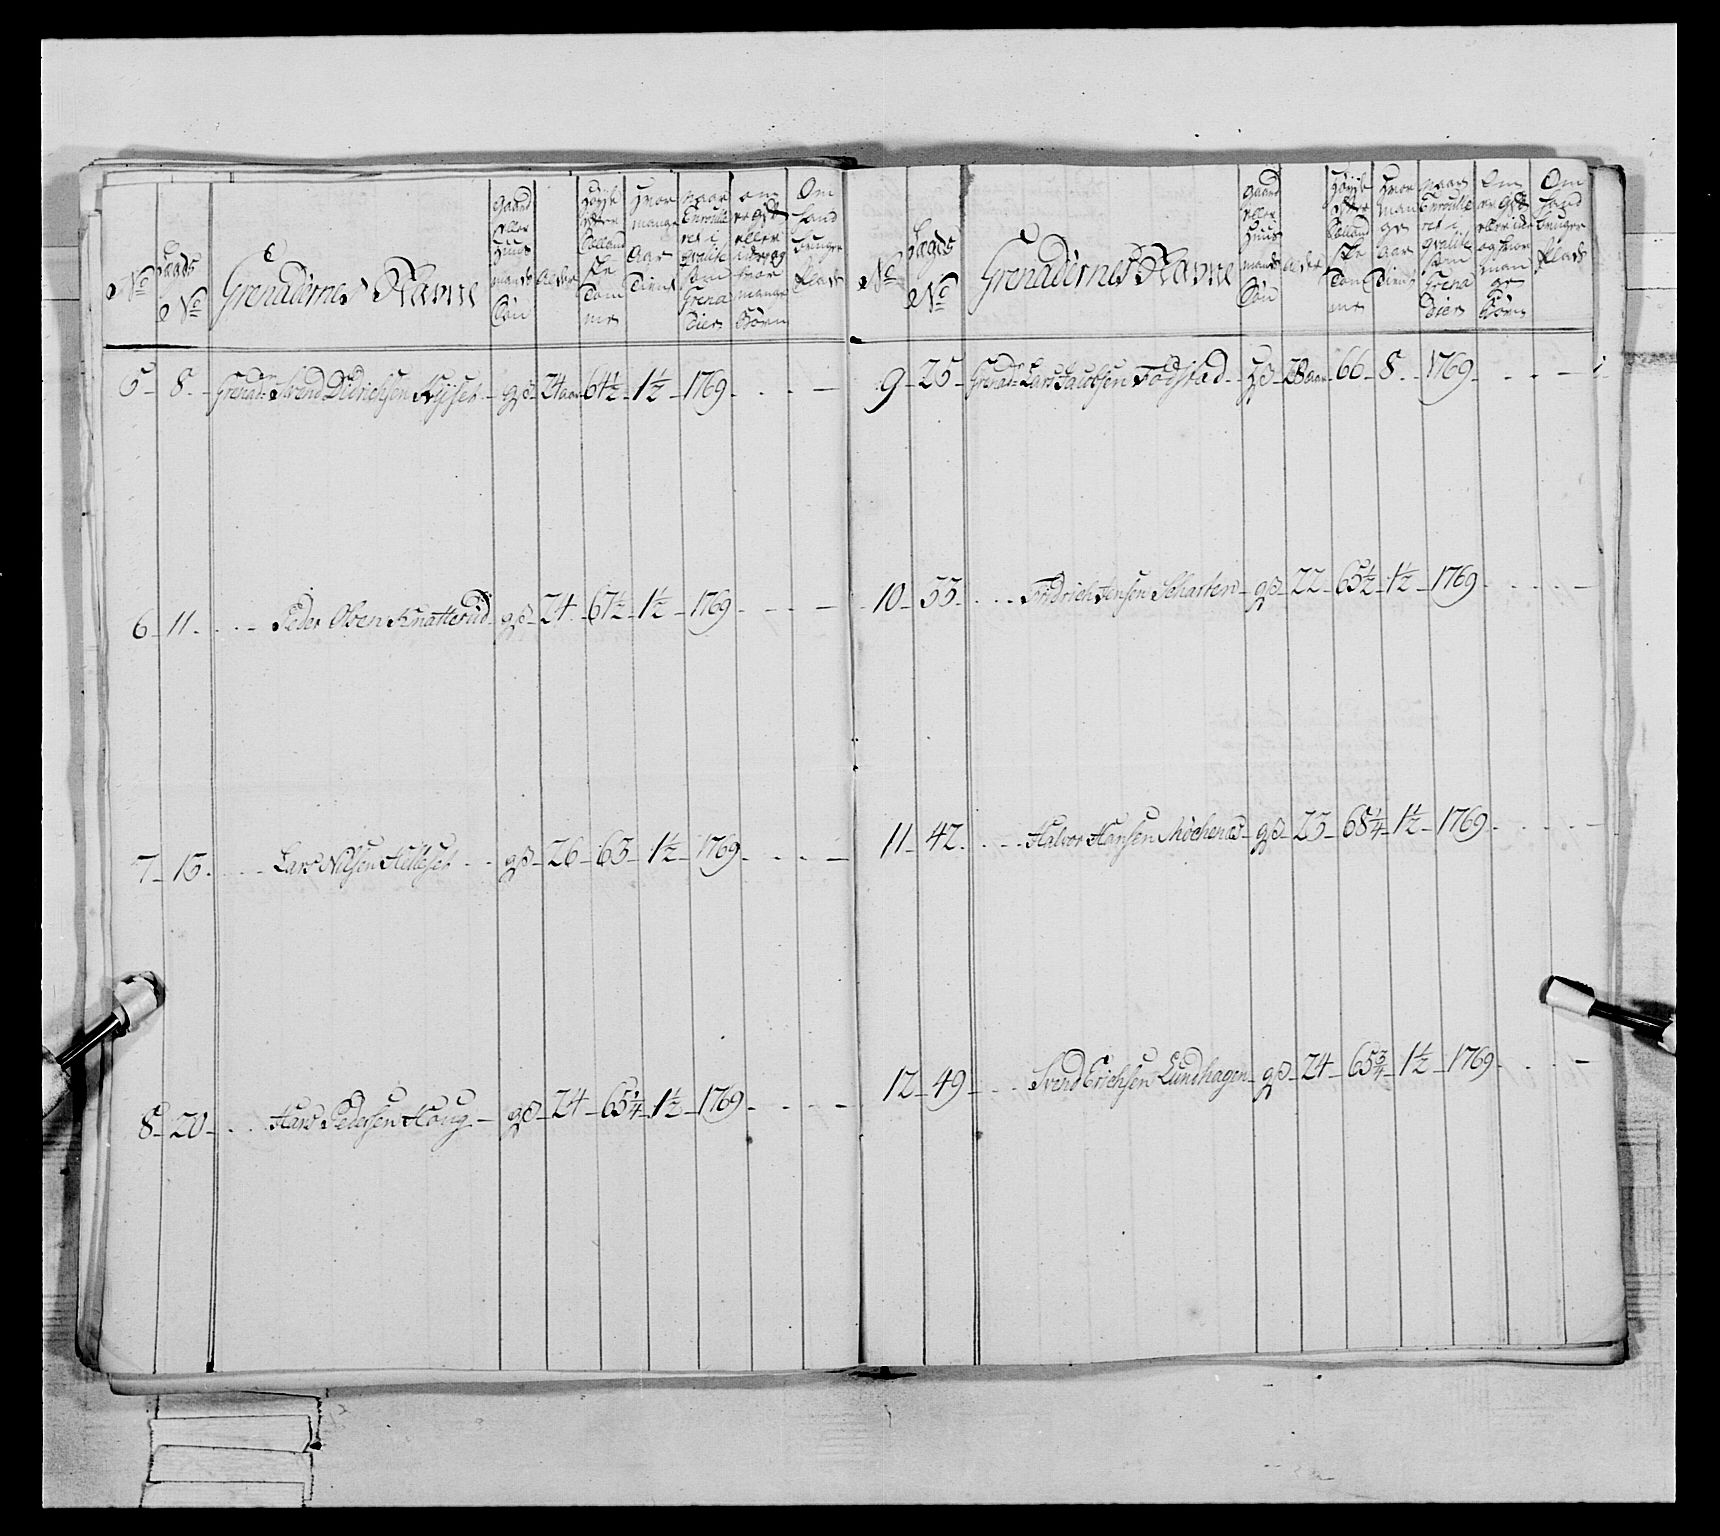 No
Lægds No
Grenadernes Navne
gaard eller Huus mands Søn
Alder
Høyde efter Siellandske Tomme
Hvor mange Aar Tient
naar Enroullered i qvalite som Grenadier
om er gift eller ikke og hvor mange Børn
Om hand bruger Plads
5 - 8 - Grenad: Svend Didrichsen - gS - 24 aar - 64½ - 1½ - 1769 - - -
6 - 11 - - - Peder Olsen Knatterud - gS - 24 - 67½ - 1½ - 1769 - - -
7 - 15 - - - Lars Nilsen Helleset - - gS - 26 - 63 - 1½ - 1769 - - -
8 - 20 - - - Hans Pedersen Houg - gS - 24 - 65¼ - 1½ - 1769 - - -
No
Lægds No
Grenadernes Navne
gaard eller Huus mands Søn
Alder
Høyde efter Siellandske Tomme
Hvor mange Aar Tient
naar Enroullered i qvalite som Grenadier
Om er gift eller ikke og hvor mange Børn
Om hand bruger Plads
9 - 25 - Grenad: Lars Jacobsen Fodstad - HS - 28 aar - 66 - 8 - 1769 - - -
10 - 33 - - - Fridrich Jensen Scharten - gS - 22 - 65½ - 1½ - 1769 - - -
11 - 42 - - - Halvor Hansen - gS - 25 - 68¼ - 1½ - 1769 - - -
12 - 49 - - - Svend Erichsen Lundhagen - gS - 24 - 65¾ - 1½ - 1769 - - -